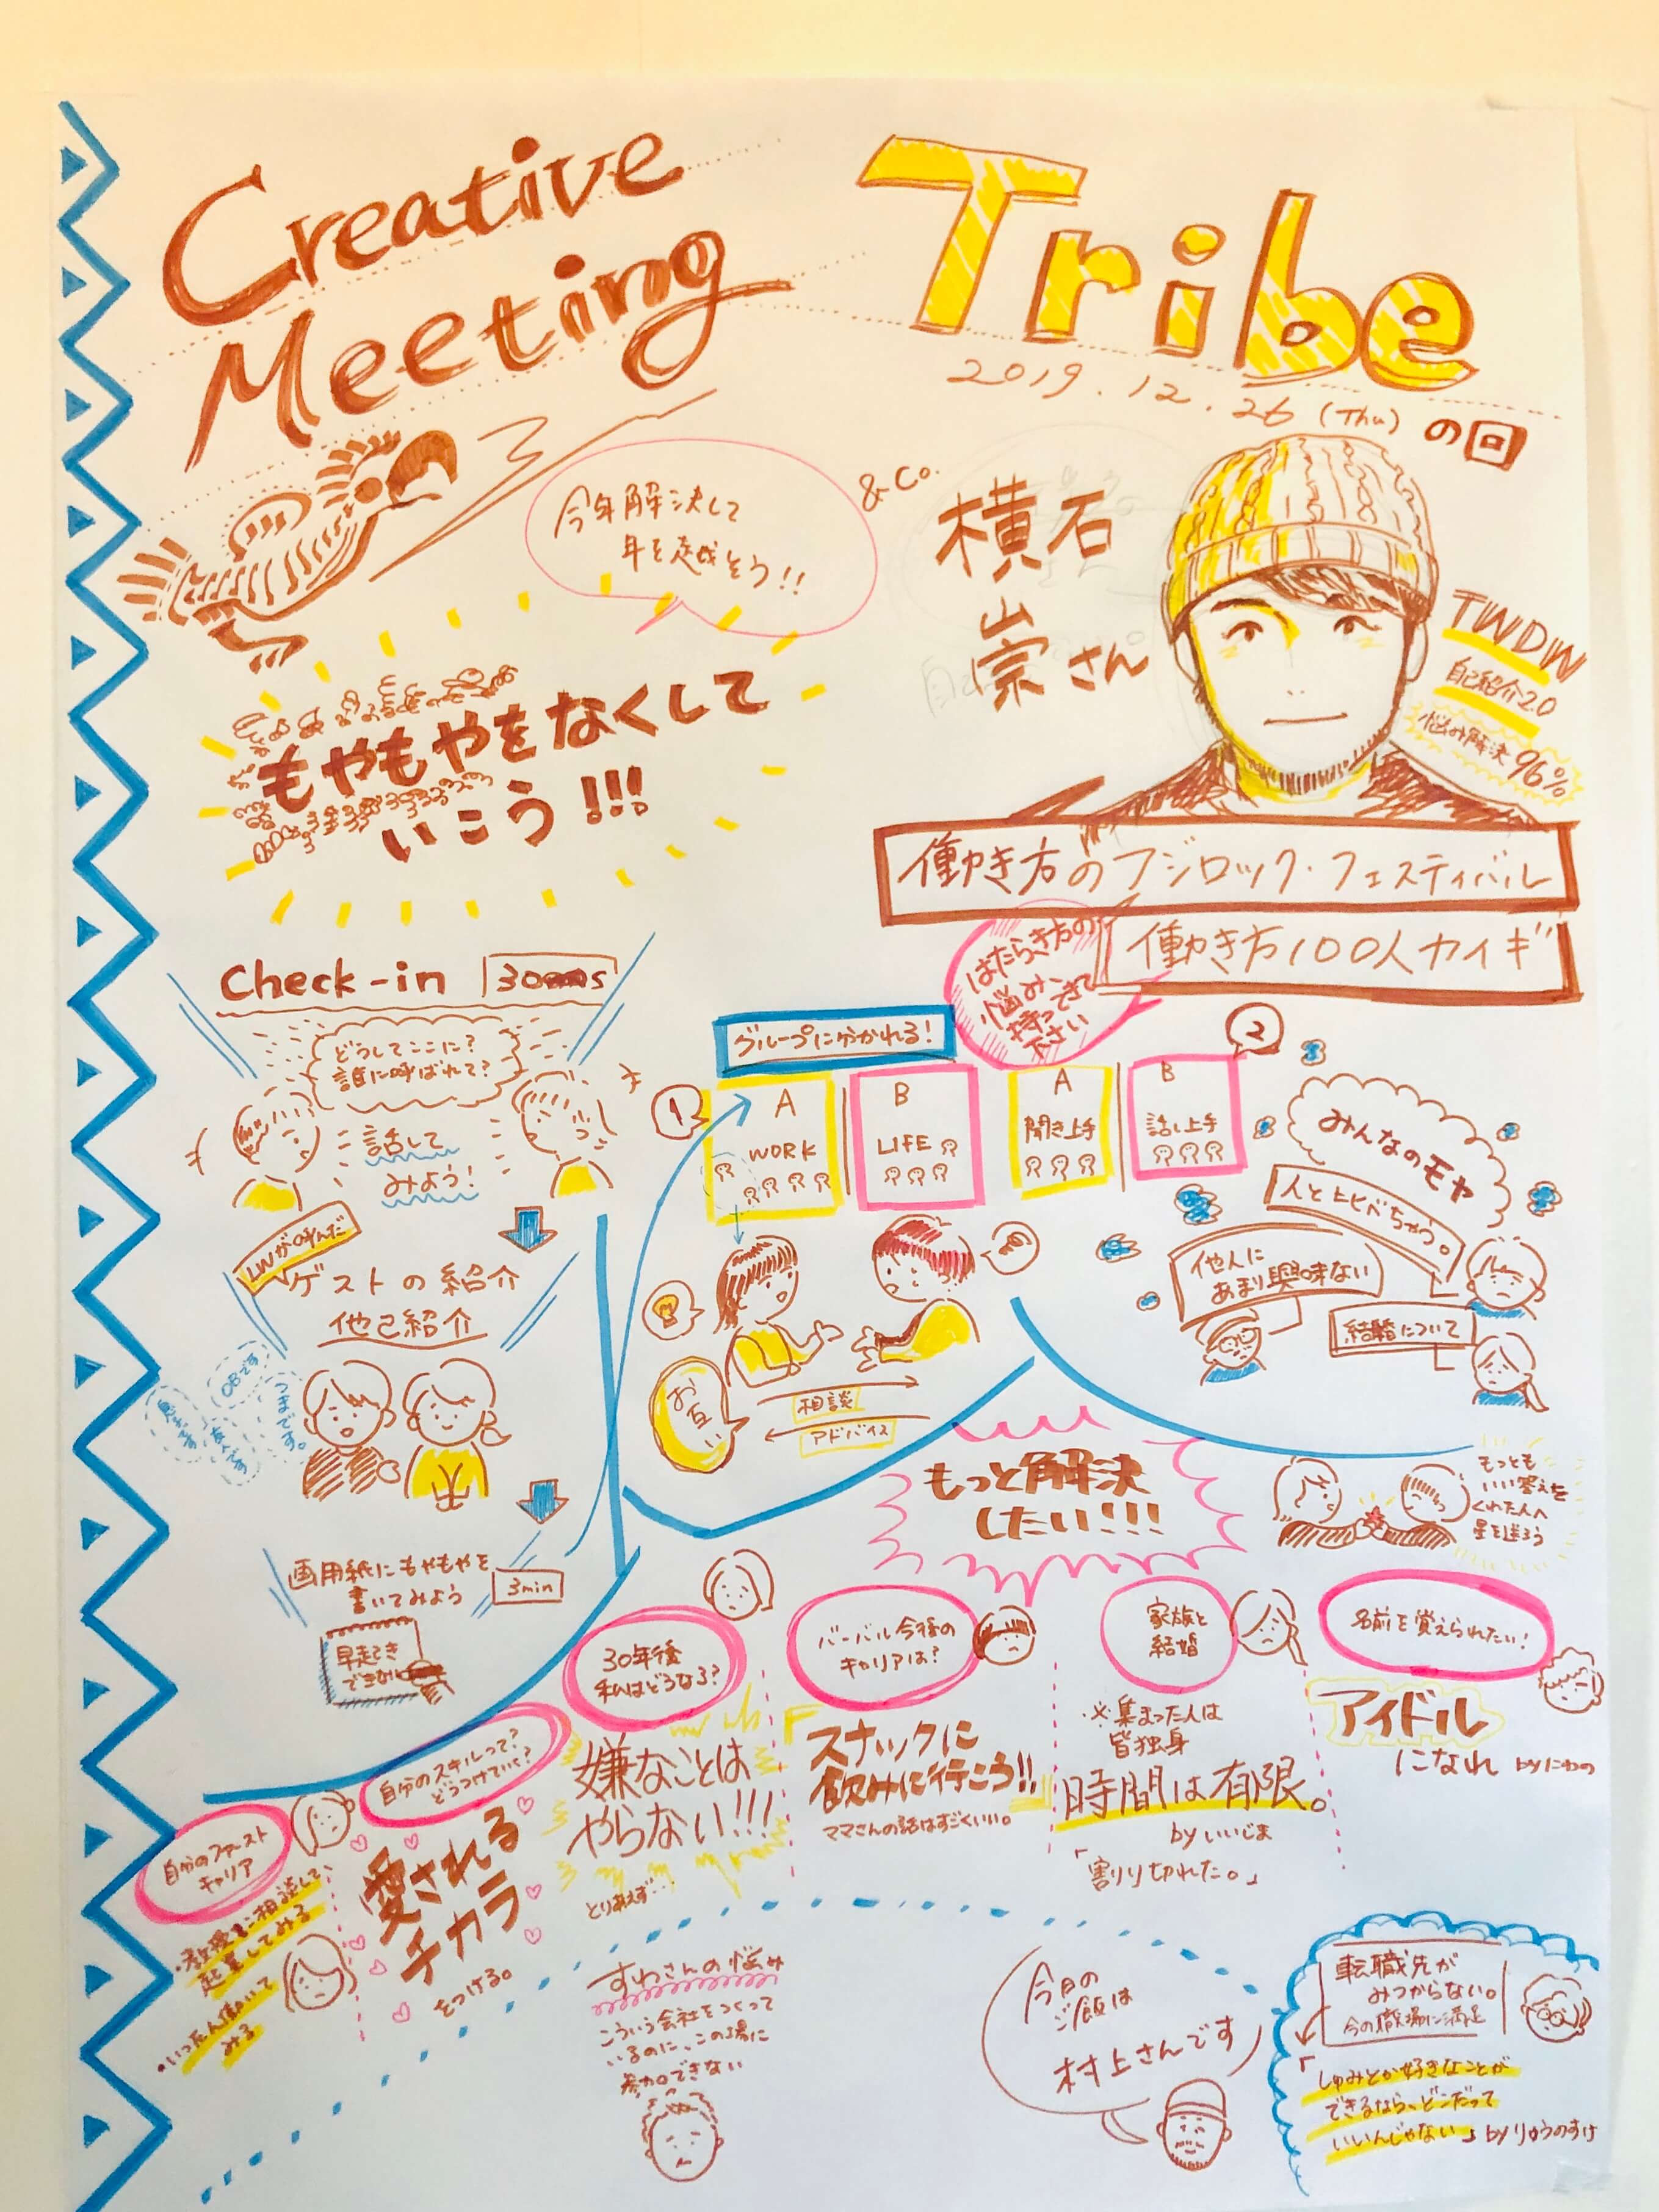 Creative
Meeting
Tribe
2019.12.26 (Thu) の回
今年解決して
年を越そう!!
&Co.
横石
崇さん
TWDW
自己紹介2.0
悩み解決 96%
もやもやをなくして
いこう!!!
働き方のフジロック・フェスティバル
働き方100人カイギ
はたらき方の
悩み
持ってきて
下さい
Check-in 30s
どうしてここに?
誰に呼ばれて?
話して
みよう!
LWが呼んだ
ゲストの紹介
他己紹介
OBです
友人です
つまです。
画用紙にもやもやを
書いてみよう
3min
早起き
できない
グループに分かれる!
1
A
WORK
B
LIFE
A
聞き上手
B
話し上手
2
お互い
相談
アドバイス
みんなのモヤ
人と比べちゃう。
他人に
あまり興味ない
結婚について
もっと解決
したい!!!
もっとも
いい答えを
くれた人へ
星を送ろう
自分のファースト
キャリア
・教授に相談して、
起業してみる
・いったん働いて
みる
自分のスキルって?
どうつけていく?
愛される
チカラ
をつける。
30年後
私はどうなる?
嫌なことは
やらない!!!
とりあえず…
バーバル今後の
キャリアは?
スナックに
飲みに行こう!!
ママさんの話はすごくいい。
家族と
結婚
※集まった人は
皆独身
時間は有限。
by いいじま
「割り切れた。」
名前を覚えられたい!
アイドル
になれ by にわの
すわさんの悩み
こういう会社をつくって
いるのに、この場に
参加できない
今日の
ご飯は
村上さんです
転職先が
みつからない。
今の職場に満足
「しゅみとか好きなことが
できるなら、どこだって
いいんじゃない」 by りゅうのすけ